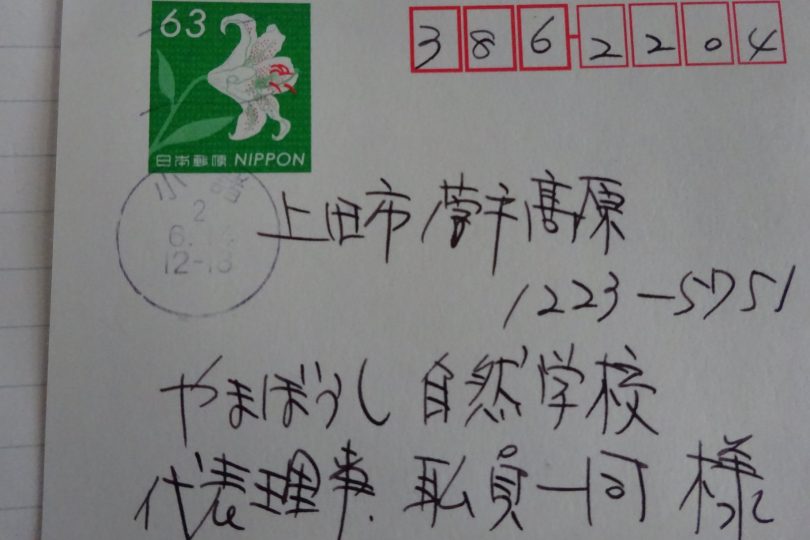 63
日本郵便 NIPPON
386-2204
小諸
2
6.
12-18
上田市菅平高原
1223-5751
やまぼうし 自然学校
代表理事. 職員一同 様